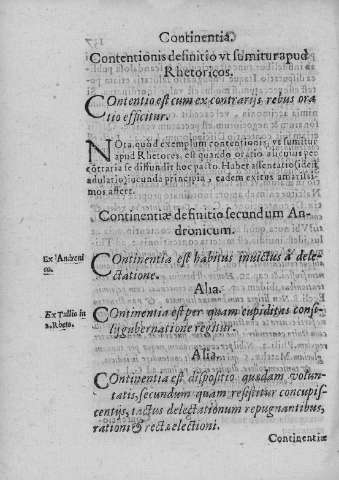 Continentia.
Contentionis definitio vt sumitur apud
Rhetoricos.
COntentio est cum ex contrarijs rebus ora
tio efficitur.
NOta, quod exemplum contentionis, vt sumitur
apud Rhetores, est quando oratio alicuius per
cõtraria se diffundit hoc pacto. Habet assentatio (idest
adulatio) iucunda principia, eadem exitus amarissi-
mos affert.
Continentiæ definitio secundum An-
dronicum.
Ex Androni
co.
COntinentia est habitus inuictus à dele-
ctatione.
Alia.
Ex Tullio in
2. Rheto.
COntinentia est per quam cupiditas consi-
lij gubernatione regitur.
Alia.
COntinentia est dispositio quædam volun-
tatis, secundum quam resistitur concupis-
centijs, tactus delectationum repugnantibus,
rationi & rectæ electioni.
Continentiæ